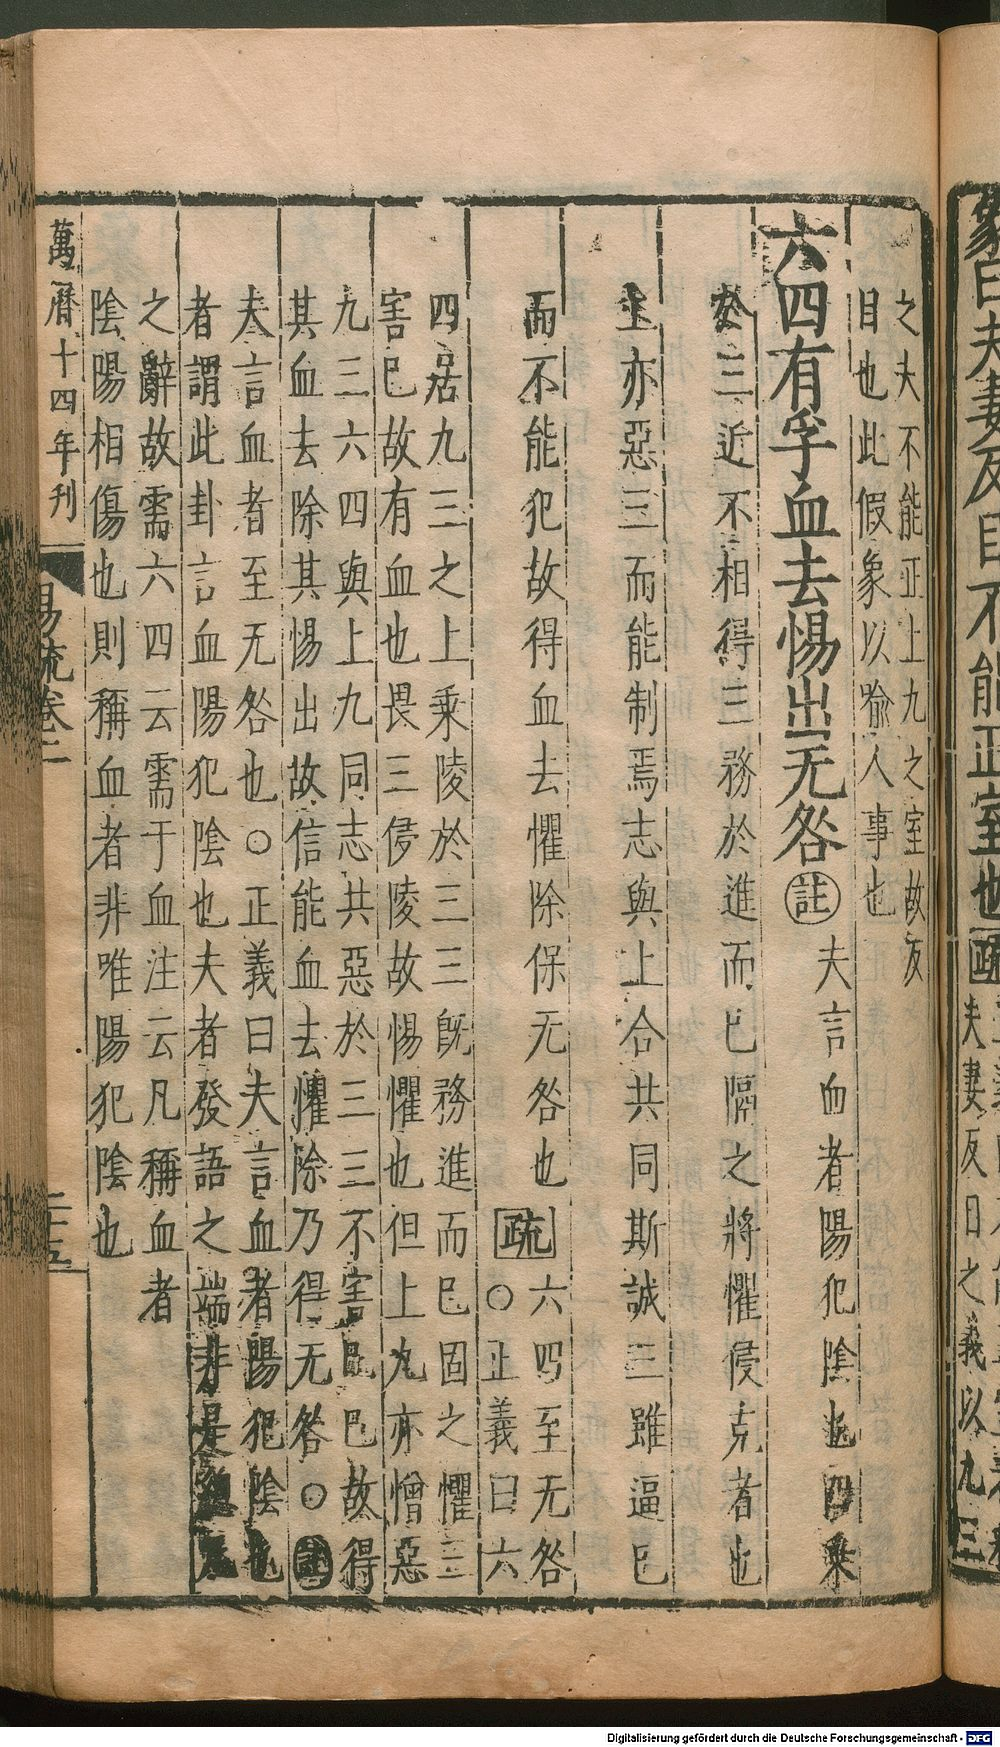 之夫不能正上九之室故反
目也此假象以喻人事也
六四有孚血去惕出无咎註
夫言血者陽犯陰也四乘
於三近不相得三務於進而已隔之將懼侵克者也
上亦惡三而能制焉志與上合共同斯誠三雖逼己
而不能犯故得血去懼除保无咎也疏
六四至无咎
○正義曰六
四居九三之上乘陵於三三既務進而己固之懼三
害己故有血也畏三侵陵故惕懼也但上九亦憎惡
九三六四與上九同志共惡於三三不害己己故得
其血去除其惕出故信能血去懼除乃得无咎○註
夫言血者至无咎也○正義曰夫言血者陽犯陰也
者謂此卦言血陽犯陰也夫者發語之端非是
之辭故需六四云需于血注云凡稱血者
陰陽相傷也則稱血者非唯陽犯陰也
萬曆十四年刊
易疏卷二
二十五
象曰夫妻反目不能正室也疏
夫妻反目之義以九三
Digitalisierung gefördert durch die Deutsche Forschungsgemeinschaft - DFG